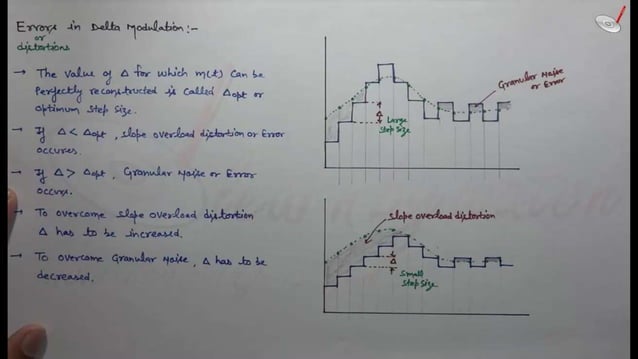 Errors in Delta Modulation:-
or
distortions
→ The value of Δ for which m(t) can be
perfectly reconstructed is called Δopt or
optimum step size.
→ If Δ < Δopt, slope overload distortion or Error
occures.
→ If Δ > Δopt, Granular Noise or Error
occurs.
→ To overcome slope overload distortion
Δ has to be increased.
→ To overcome Granular Noise, Δ has to be
decreased.
Granular Noise
or Error
Δ
Large
Step Size
slope overload distortion
Δ
Small
Step Size